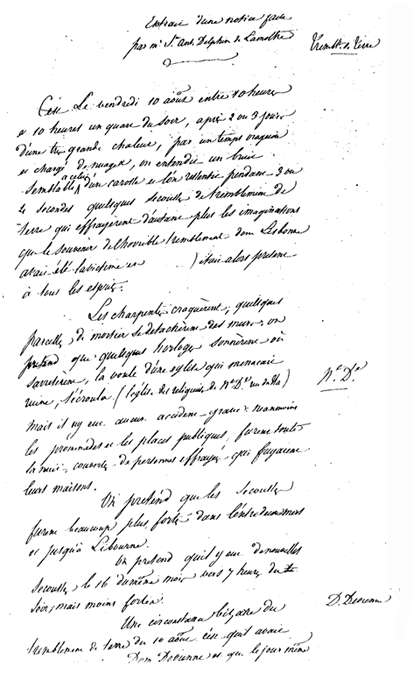 Extrait d'une notice faite
par mr St. Ant. Delphin de Lamothe
Trembt. de Terre
C'est Le vendredi 10 août entre 10 heures
et 10 heures un quart du soir, après 2 ou 3 jours
d'une très grande chaleur, par un temps orageux
et chargé de nuages, on entendit un bruit
semblable à celui d'un carosse et l'on ressentit pendant 3 ou
4 secondes quelques secousses de tremblement de
terre qui effrayerent d'autant plus les imaginations
que le souvenir de l'horrible tremblement dont Lisbonne
avait été la victime en ( ) était alors présent
à tous les esprits.
Les charpentes craquèrent, quelques
parcelles de mortier se détachèrent des murs, on
prétend que quelques horloges sonnèrent ou
s'arrêtèrent, la voute d'une église qui menacait
ruine, s'écroula (l'église des religieuses de Ne. De. rue du Ha)
Ne. De.
mais il n'y eut aucun accident grave: néanmoins
les promenades et les places publiques, furent toute
la nuit, couvertes de personnes effrayées qui fuyaient
leurs maisons.
On prétend que les secousses
furent beaucoup plus fortes dans l'entre deux mers
et jusqu'à Libourne.
On prétend qu'il y eut de nouvelles
secousses le 16 du même mois vers 7 heures du
soir, mais moins fortes.
Une circonstance bizarre du
D. Devienne
tremblement de terre du 10 août c'est qu'il avait
Dom Devienne et que le jour même